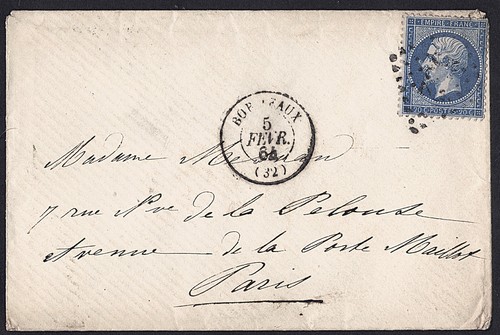 EMPIRE FRANC
20 C POSTES 20 C
BORDEAUX
5
FEVR.
64
(32)
Madame
7 rue Nve de la Pelouse
Avenue de la Porte Maillot
Paris